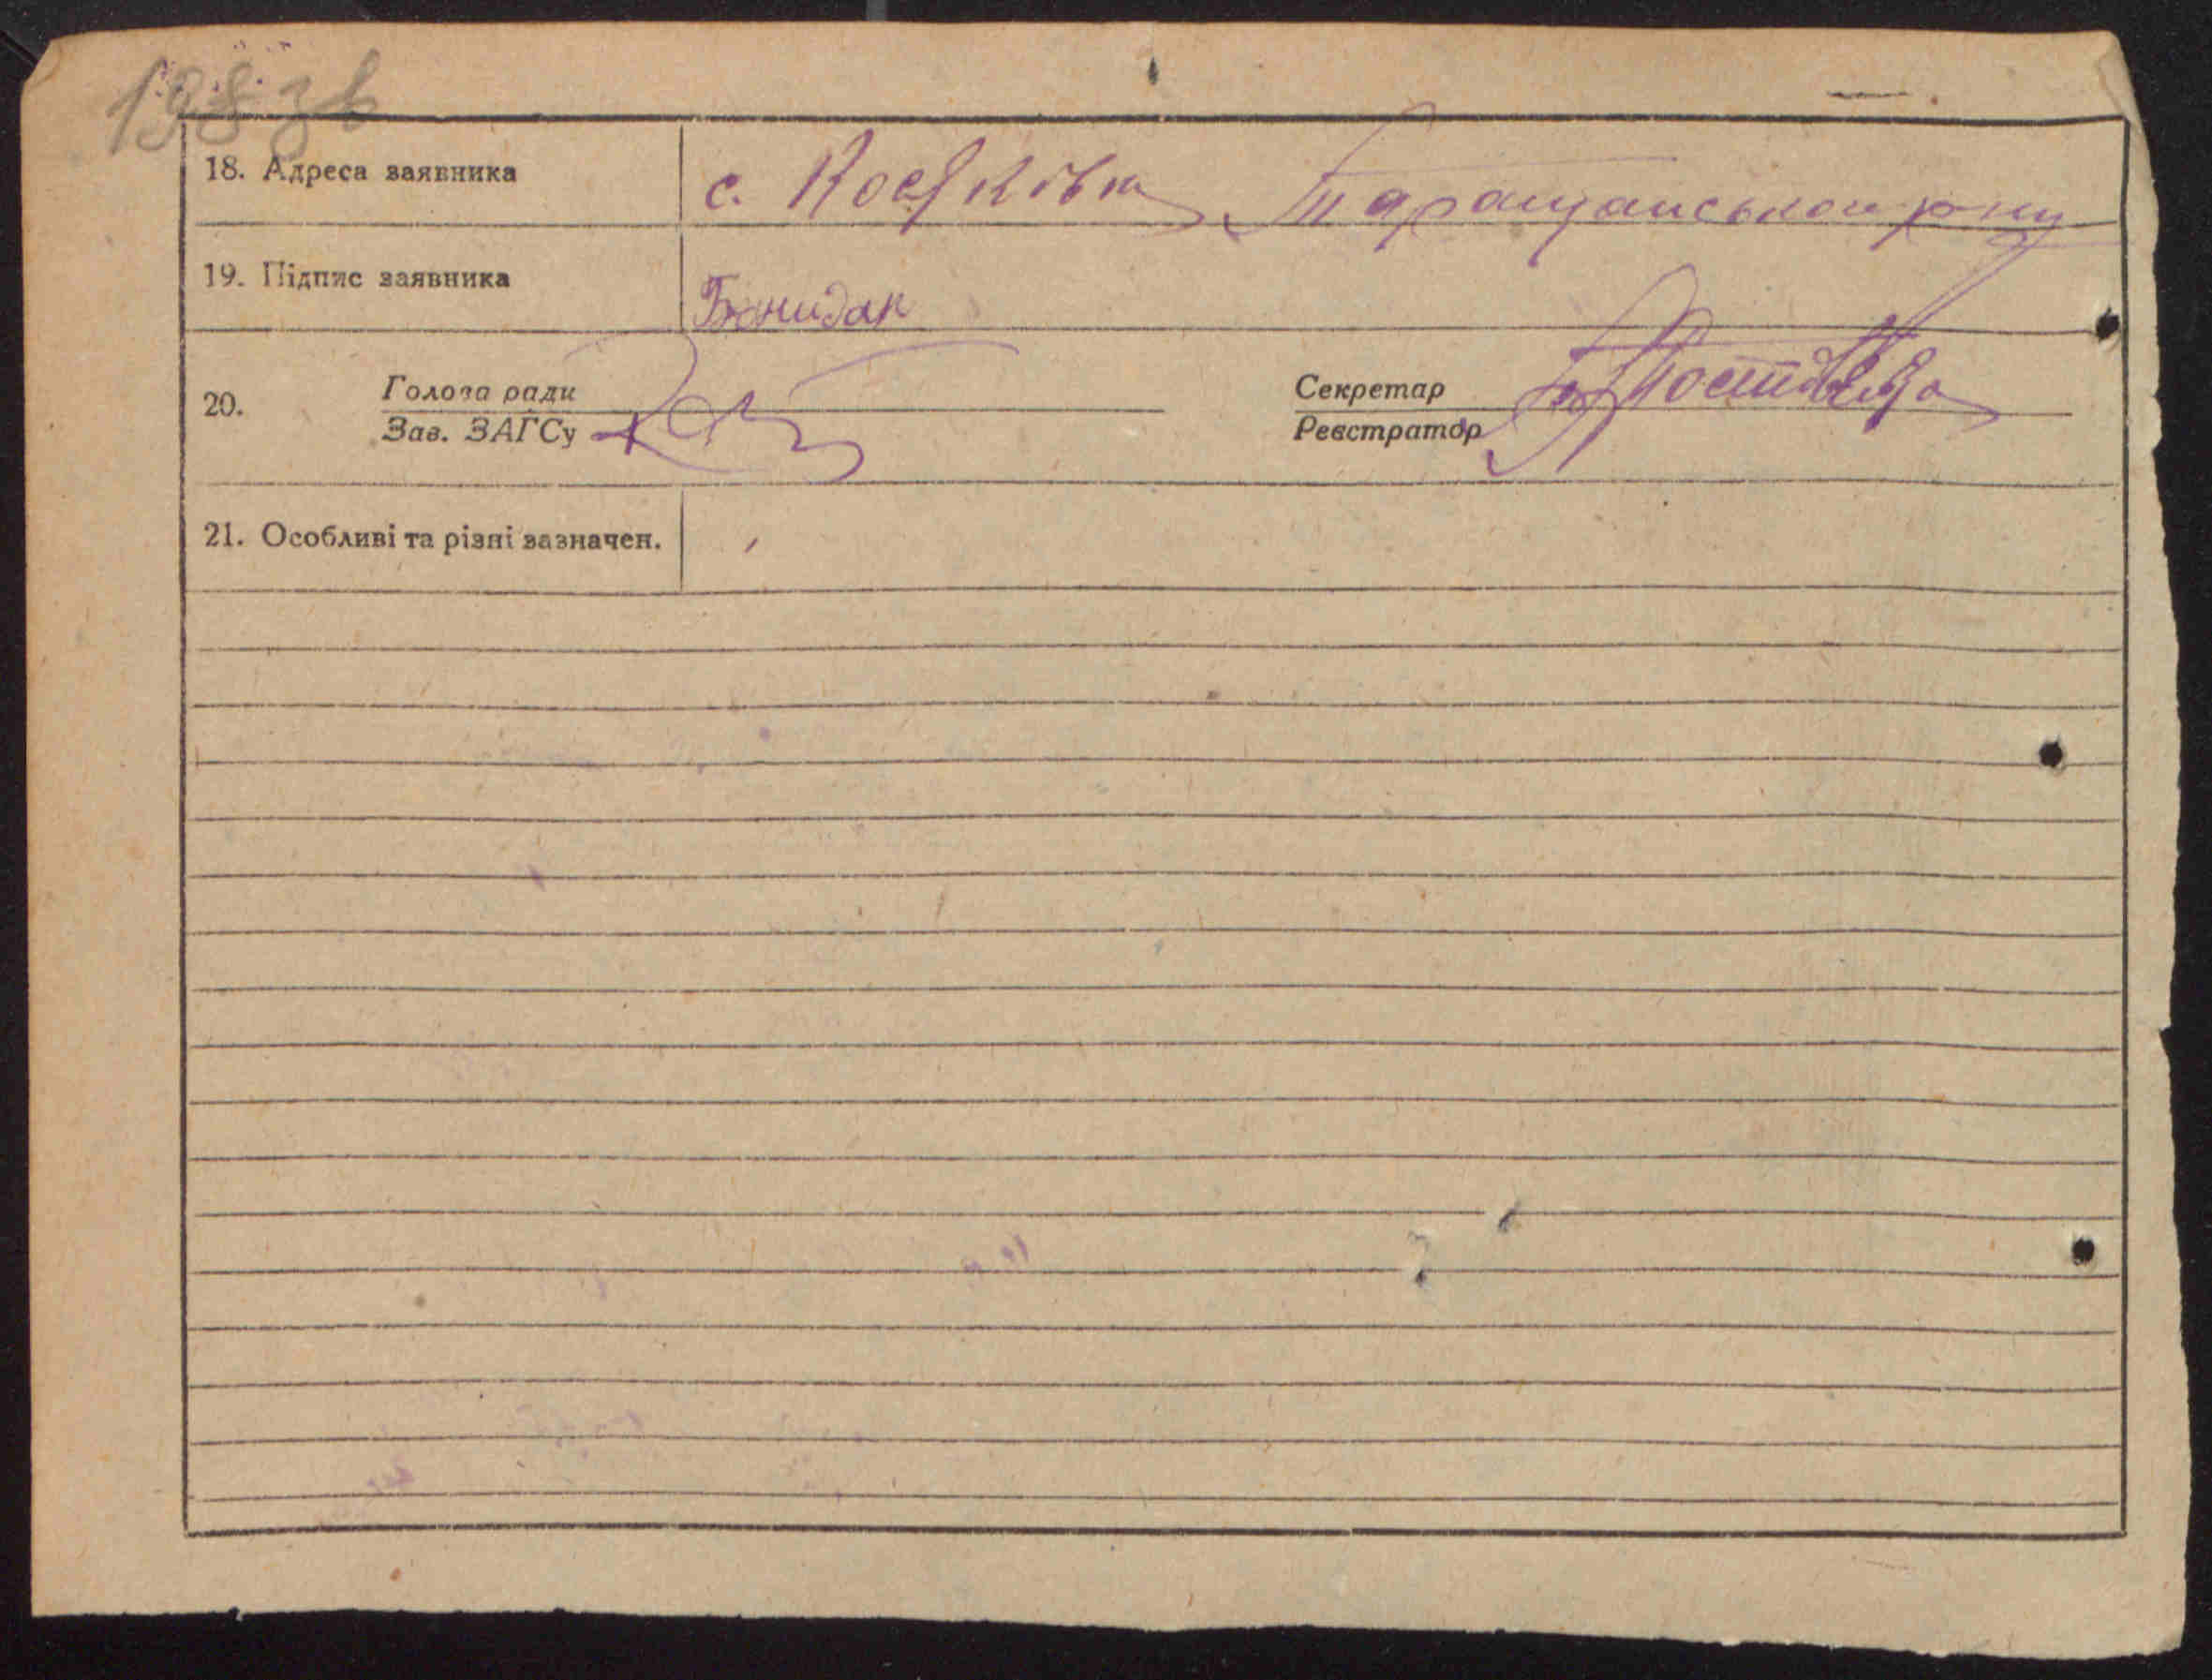 198 зв
18. Адреса заявника с. Косяківка Таращанського р-ну
19. Підпис заявника
20. Голова ради Секретар
Зав. ЗАГСу Реєстратор
21. Особливі та різні зазначен.